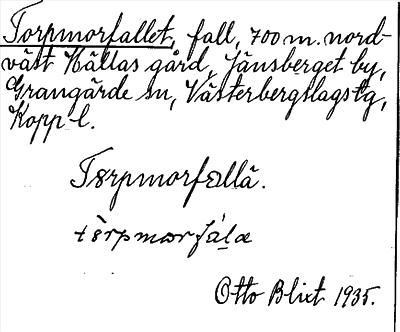 Torpmorfallet, fall, 700 m. nord-
väst Hällas gård, Jänsberget by,
Grangärde sn, Västerbergslags tg,
Kopp-l.
Tørpmorfallä.
Otto Blixt 1935.